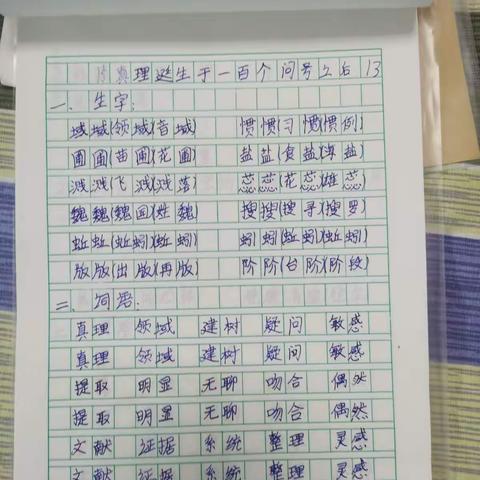 真理诞生于一百个问号之后 13
一、生字:
域域(领域)(音域) 惯惯(习惯)(惯例)
圃圃(苗圃)(花圃) 盐盐(食盐)(海盐)
溅溅(飞溅)(溅落) 蕊蕊(花蕊)(雄蕊)
魏魏(魏国)(姓魏) 搜搜(搜寻)(搜罗)
蚯蚯(蚯蚓)(蚯蚓) 蚓蚓(蚯蚓)(蚯蚓)
版版(出版)(再版) 阶阶(台阶)(阶段)
二、词语:
真理 领域 建树 疑问 敏感
真理 领域 建树 疑问 敏感
提取 明显 无聊 吻合 偶然
提取 明显 无聊 吻合 偶然
文献 证据 系统 整理 灵感
文献 证据 系统 整理 灵感